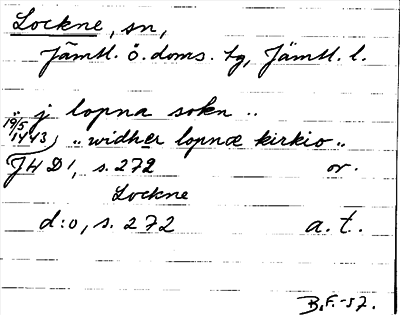 Lockne, sn,
Jämtl. ö. doms. tg, Jämtl. l.
.. j lopna sokn ..
19/5 1443) .. widher lopnæ kirkio ..
JHD 1, s. 272 or.
Lockne
d:o, s. 272 a. t.
B.F.-57.